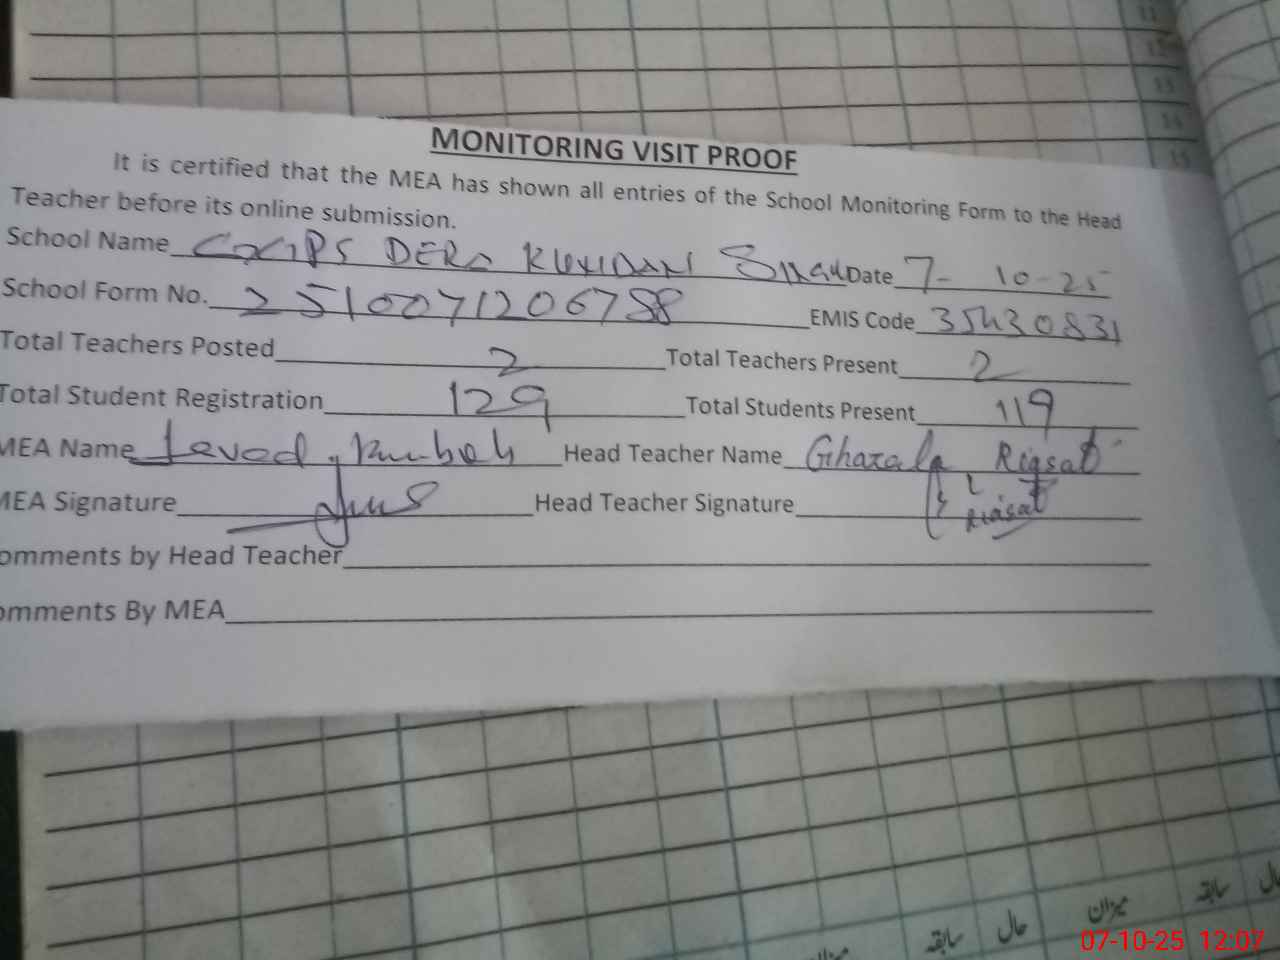 MONITORING VISIT PROOF
It is certified that the MEA has shown all entries of the School Monitoring Form to the Head
Teacher before its online submission.
School Name GGPS DERA Date 7-10-25
School Form No. 2510071206788 EMIS Code 35430831
Total Teachers Posted 2 Total Teachers Present 2
Total Student Registration 129 Total Students Present 119
MEA Name Javed Kumboh Head Teacher Name Ghazala Riasat
MEA Signature Head Teacher Signature Riasat
omments by Head Teacher
omments By MEA
سابقہ حال میزان سابقہ حال
07-10-25 12:07